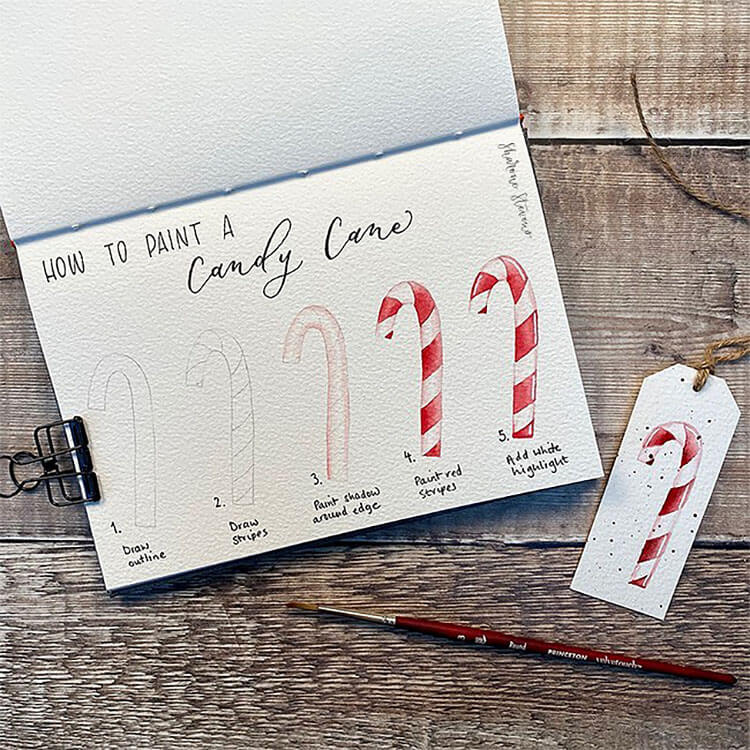 Sharone Stevens
HOW TO PAINT A
Candy Cane
1.
Draw
outline
2.
Draw
stripes
3.
Paint shadow
around edge
4.
Paint red
stripes
5.
Add white
highlight
3 Round PRINCETON velvetouch